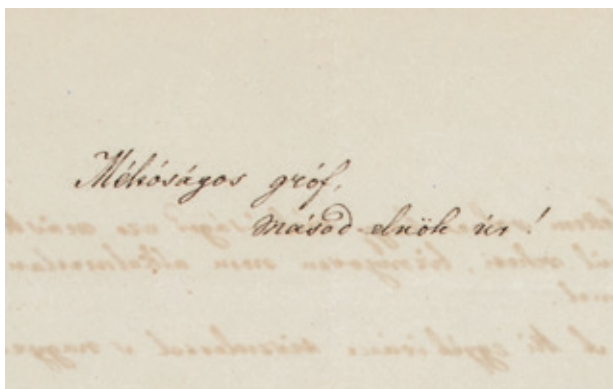 Méltóságos gróf,
másod elnök úr!